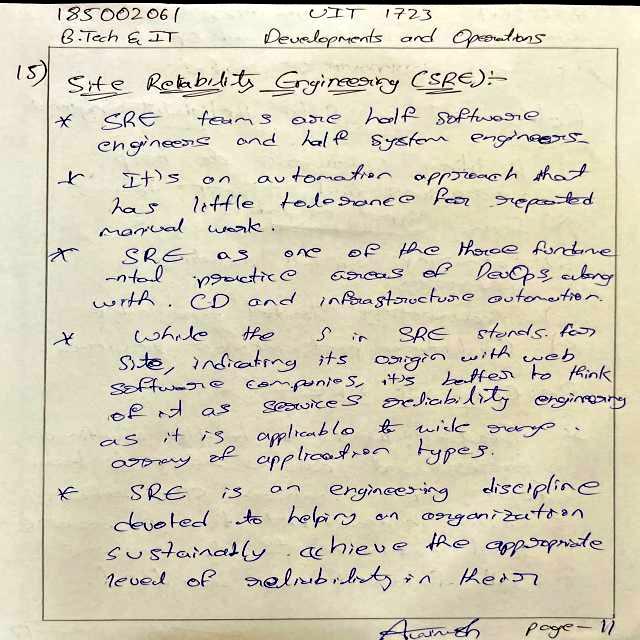 185002061 UIT 1723
B.Tech & IT Developments and Operations
15) Site Reliability Engineering (SRE):-
* SRE teams are half software
engineers and half system engineers.
* It's an automation approach that
has little tolerance for repeated
manual work.
* SRE as one of the three fundame
-ntal practice areas of DevOps, along
with. CD and infrastructure automation.
* While the S in SRE stands. for
Site, indicating its origin with web
software companies, it's better to think
of it as services reliability engineering
as it is applicable to wide range..
array of application types.
* SRE is an engineering discipline
devoted to helping an organization
sustainably achieve the appropriate
level of reliability in their
page-11